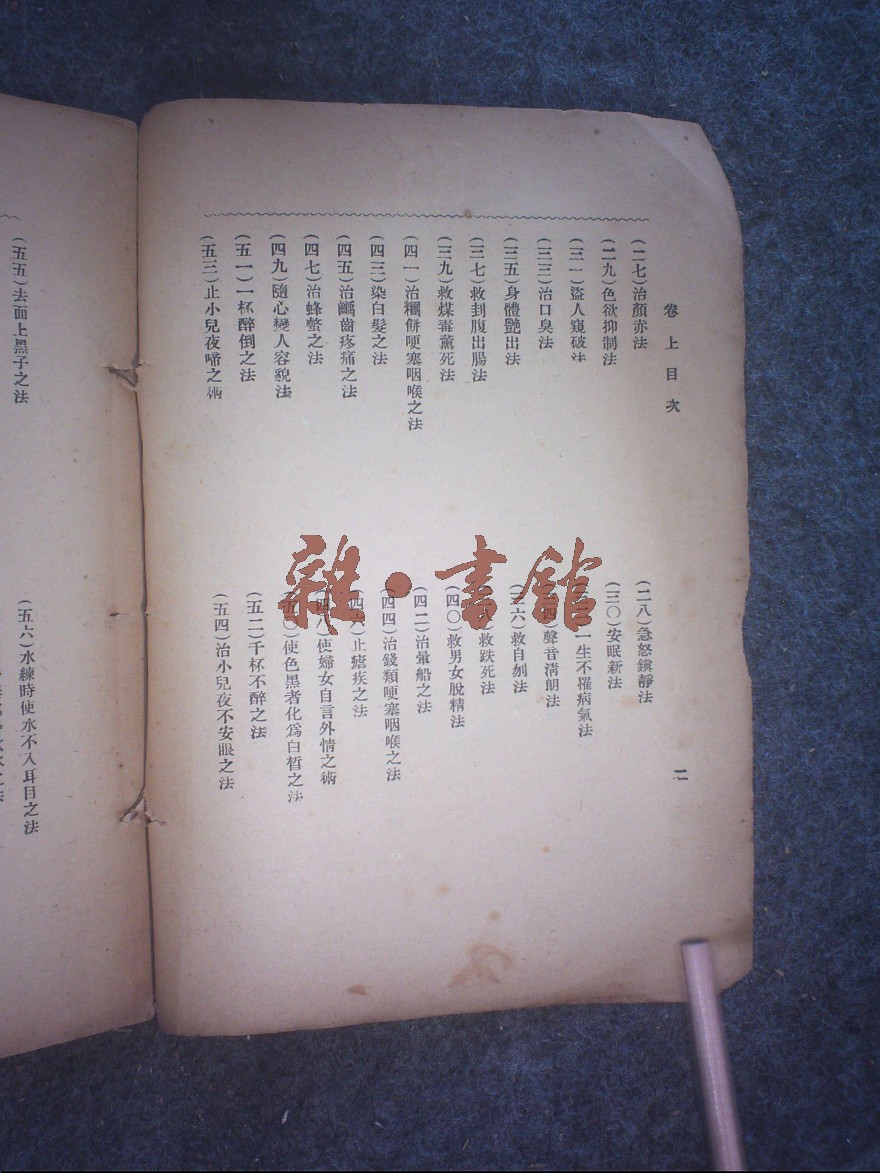 卷上目次
二
(二七)治顏赤法
(二八)急怒鎭靜法
(二九)色欲抑制法
(三〇)安眠新法
(三一)盜人窺破法
一生不罹病氣法
(三三)治口臭法
聲音淸朗法
(三五)身體艷出法
(三六)救自刎法
(三七)救刲腹出腸法
救跌死法
(三九)救煤毒薰死法
(四〇)救男女脫精法
(四一)治糰餅哽塞咽喉之法
(四二)治暈船之法
(四三)染白髮之法
(四四)治錢類哽塞咽喉之法
(四五)治齲齒疼痛之法
(四六)止瘧疾之法
(四七)治蜂螫之法
(四八)使婦女自言外情之術
(四九)隨心變人容貌法
(五〇)使色黑者化爲白皙之法
(五一)一杯醉倒之法
(五二)千杯不醉之法
(五三)止小兒夜啼之術
(五四)治小兒夜不安眼之法
(五五)去面上黑子之法
(五六)水練時使水不入耳目之法
雜·書館